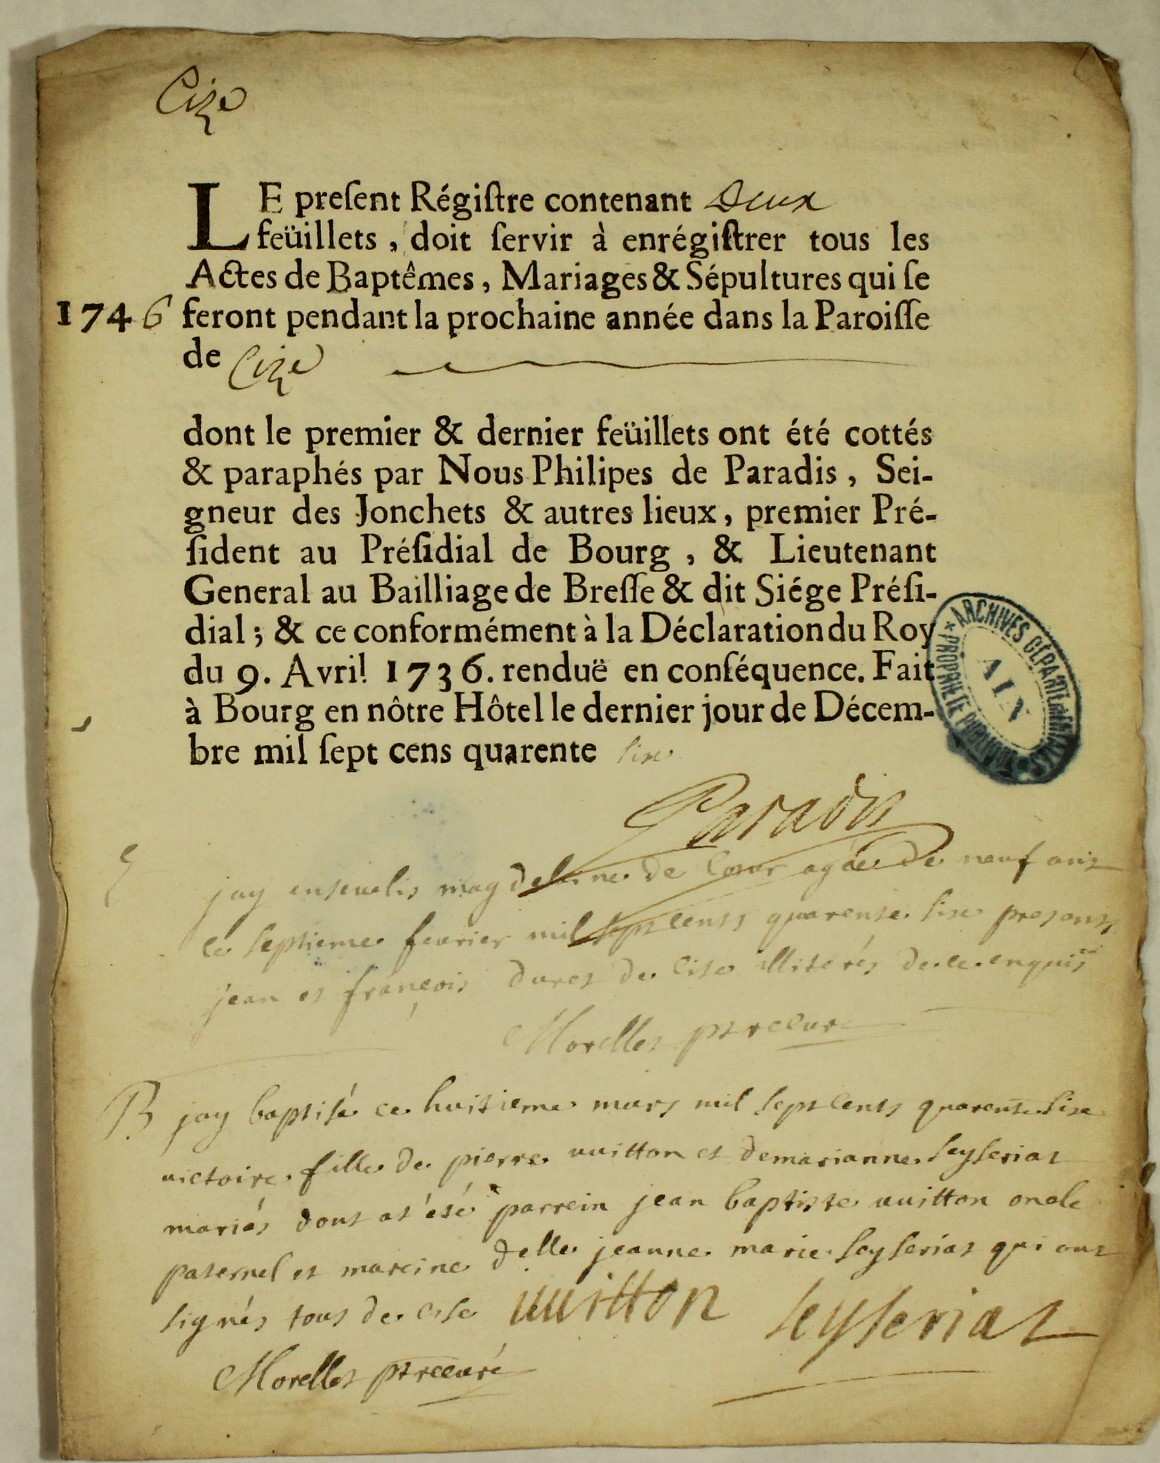 Cize
LE preſent Régiſtre contenant Deux
feüillets, doit ſervir à enrégiſtrer tous les
Actes de Baptêmes, Mariages & Sépultures qui ſe
1746 feront pendant la prochaine année dans la Paroiſſe
de Cize
dont le premier & dernier feüillets ont été cottés
& paraphés par Nous Philipes de Paradis, Sei-
gneur des Jonchets & autres lieux, premier Pré-
ſident au Préſidial de Bourg, & Lieutenant
General au Bailliage de Breſſe & dit Siége Préſi-
dial; & ce conformément à la Déclaration du Roy
du 9. Avril 1736. renduë en conſéquence. Fait
à Bourg en nôtre Hôtel le dernier jour de Décem-
bre mil ſept cens quarente six
ARCHIVES DÉPARTEMENTALES
AIN
PROPRIÉTÉ PUBLIQUE
Paradis
jay ensevelis magdeleine de agée de neuf ans
le septieme fevrier mil sept cents quarente six presents
jean et françois de cise illiterés de ce enquis
Morellet ptre curé
B jay baptisé ce huitieme mars mil sept cents quarente six
victoire fille de pierre vuitton et demarianne seyseriat
mariés dont at été parrein jean baptiste vuitton oncle
paternel et mareine delle jeanne marie seyseriat qui ont
signés tous de cise vuitton seyseriat
Morellet ptre curé